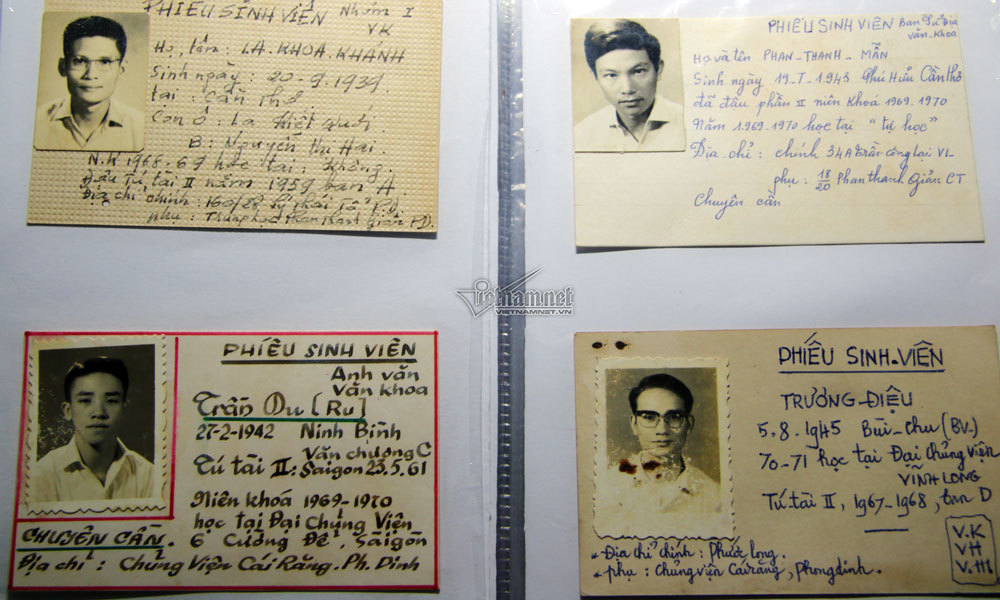 PHIẾU SINH VIÊN Nhóm I
VK
Họ, tên : LA. KHOA. KHANH
Sinh ngày : 20-9-1939
tại : Cần Thơ
Con Ô : La Hiệt Quới
B : Nguyễn Thị Hai.
N.K 1968-69 học tại : Không
Đậu Tú tài II năm 1959 ban A
Địa chỉ chính : 160/28 Lý Thái Tổ P.D
phụ : Trung học Phan Thanh Giản P.D.
PHIẾU SINH VIÊN Ban Sử Địa
Văn-Khoa
Họ và tên PHAN-THANH-MẪN
Sinh ngày 19.7.1943 Phú Hữu Cần Thơ
đã đậu phần II niên khoá 1969-1970
Năm 1969-1970 học tại "tự học"
Địa chỉ : chính 34A Trần Công Lại VL
phụ : 18/20 Phan Thanh Giản CT
Chuyên cần
vietnam.net
VIETNAMNET.VN
PHIẾU SINH VIÊN
Anh văn
Văn khoa
Trần Du [Ru]
27-2-1942 Ninh Bình
Văn chương C
Tú tài II : Saigon 23.5.61
Niên khoá 1969-1970
học tại Đại Chủng Viện
6 Cường Để, Saigon
CHUYÊN CẦN.
Địa chỉ : Chủng Viện Cái Răng. Ph. Dinh
PHIẾU SINH-VIÊN
TRƯƠNG-ĐIỆU
5.8-1945 Bùi-Chu (BV.)
70-71 học tại Đại Chủng Viện
VĨNH LONG
Tú tài II, 1967-1968, ban D
V.K
VH
V.M
* Địa chỉ chính : Phước long.
* phụ : Chủng viện Cái răng, Phong dinh.